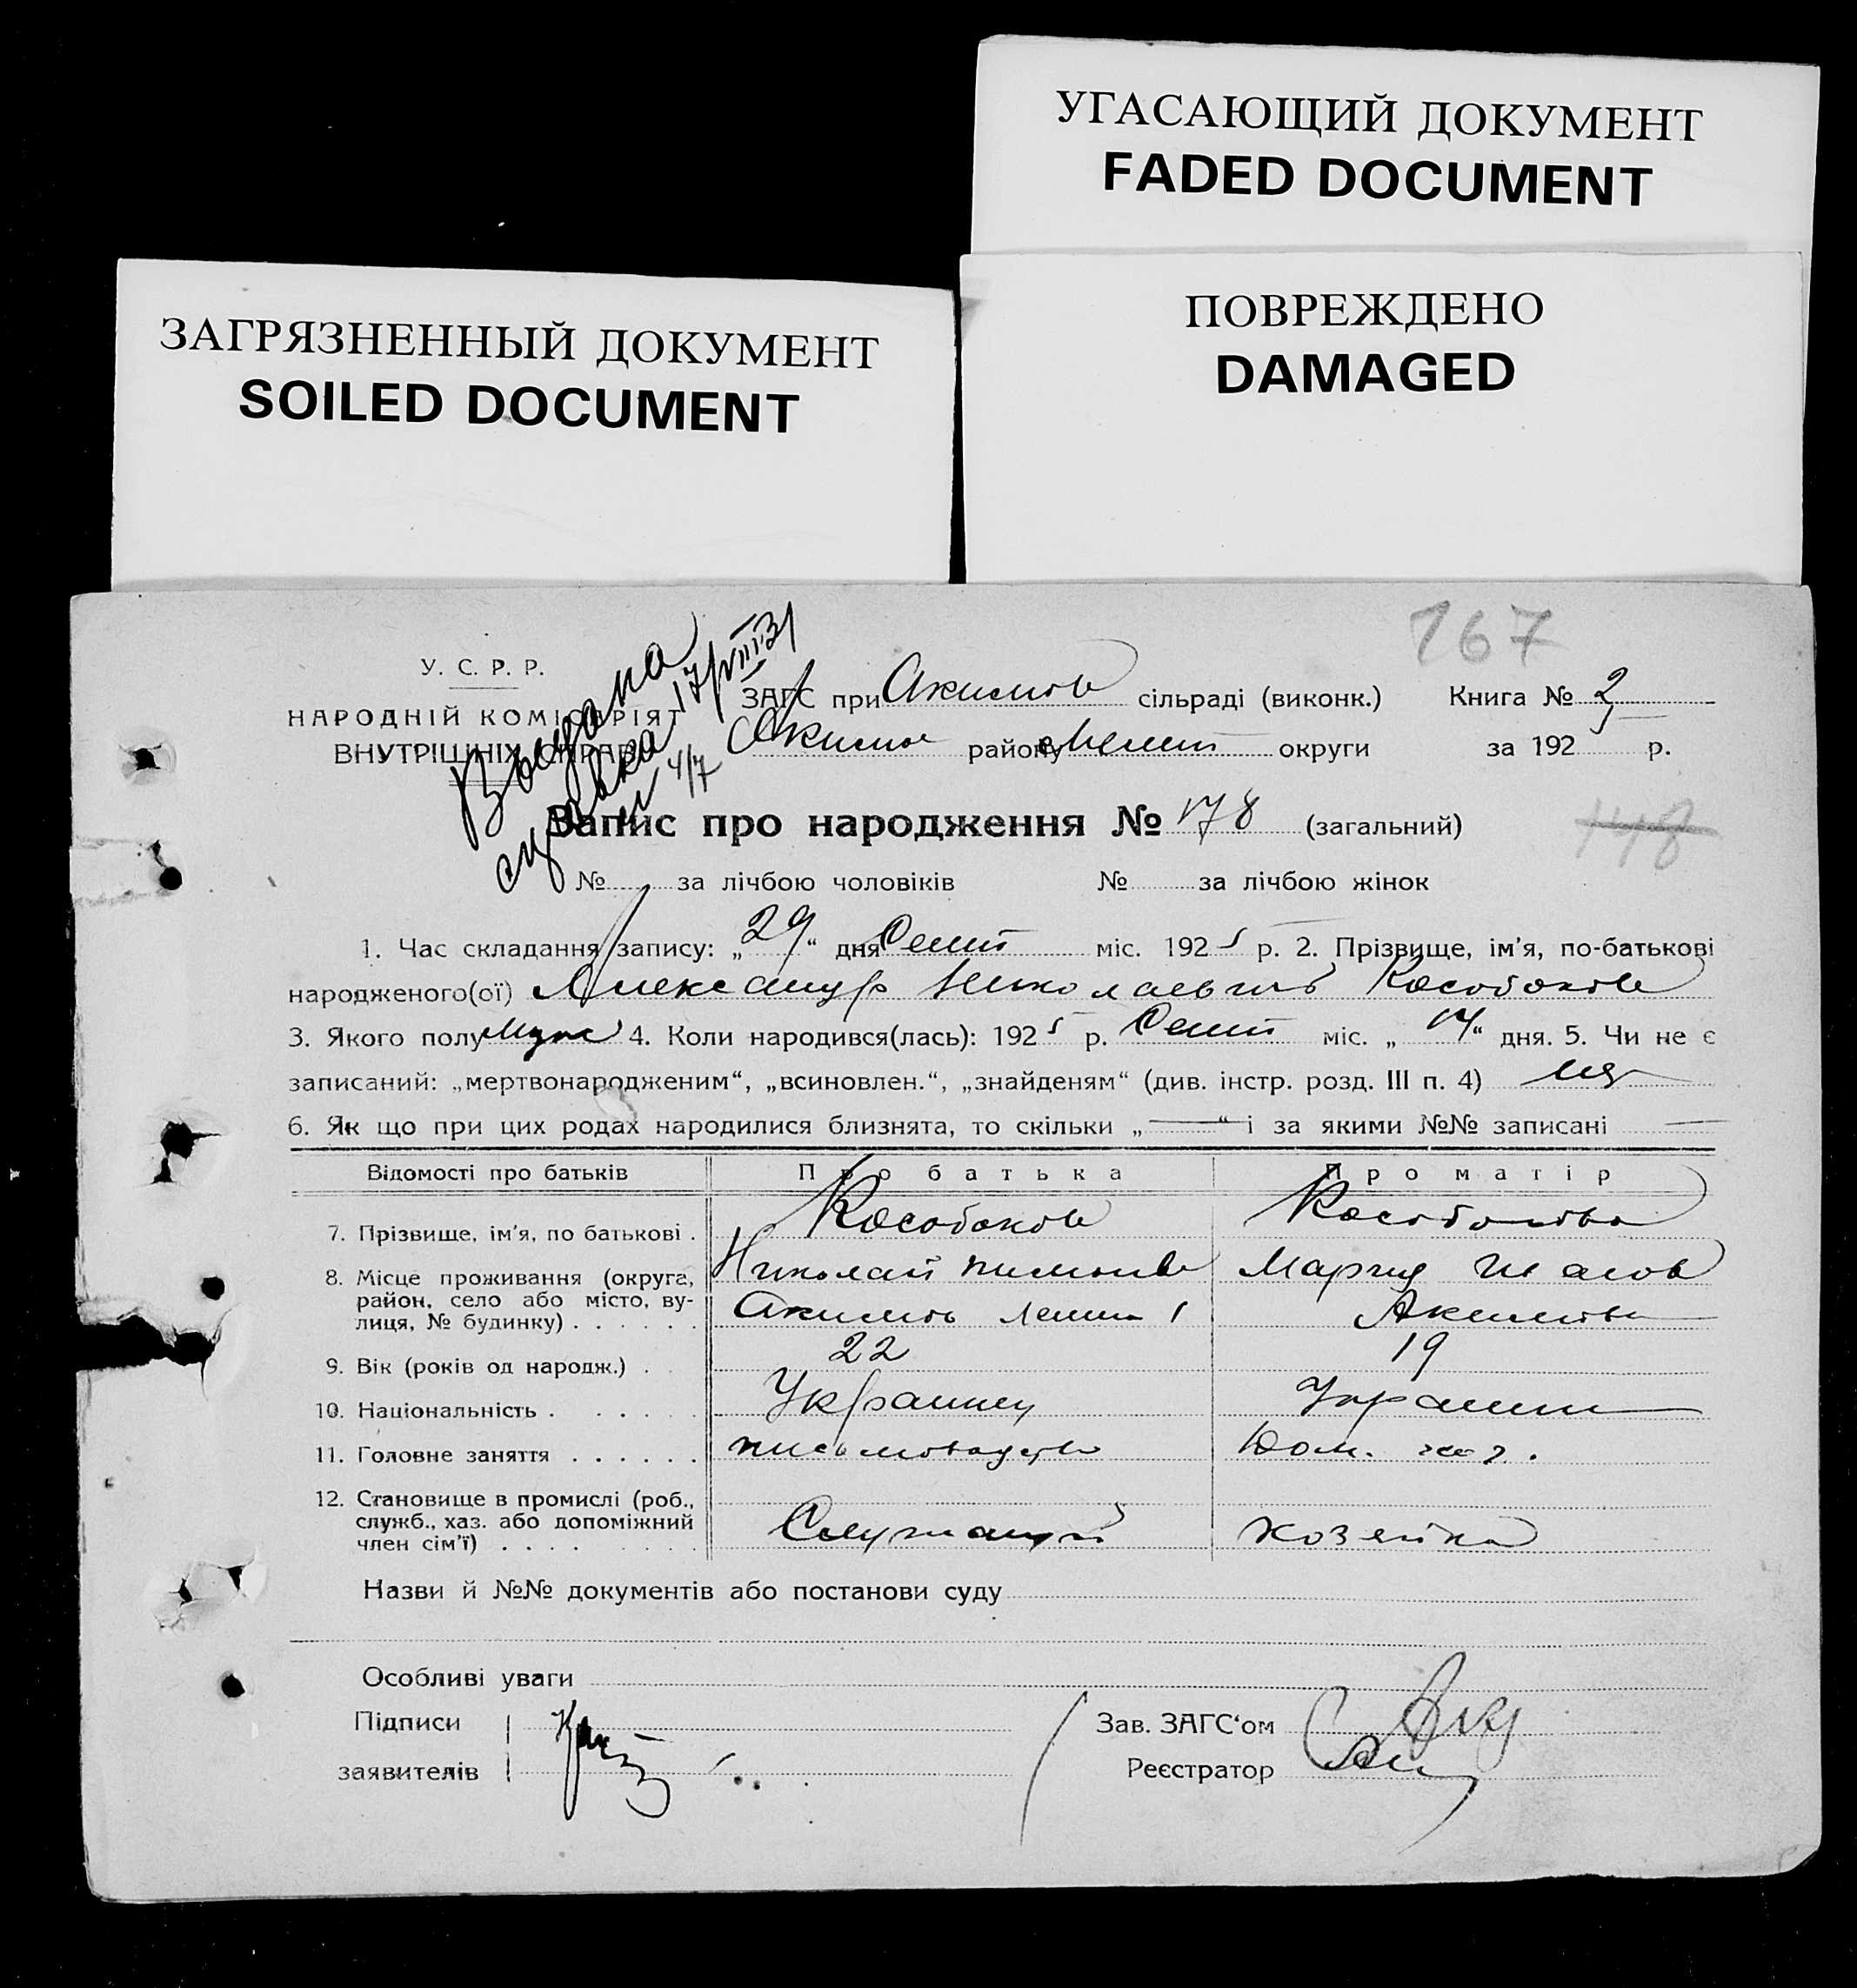 УГАСАЮЩИЙ ДОКУМЕНТ
FADED DOCUMENT
ЗАГРЯЗНЕННЫЙ ДОКУМЕНТ
SOILED DOCUMENT
ПОВРЕЖДЕНО
DAMAGED
167
У. С. Р. Р.
НАРОДНІЙ КОМІСАРІЯТ
ВНУТРІШНІХ СПРАВ
Выдана
справка 17/VIII 31
ЗАГС при Акимов сільраді (виконк.) Книга № 2
Акимов району Мелит округи за 192 5 р.
Запис про народження № 178 (загальний)
148
№ за лічбою чоловіків № за лічбою жінок
1. Час складання запису: „29“ дня Сент міс. 1925 р. 2. Прізвище, ім'я, по-батькові
народженого(ої) Александр Николаевич Кособоков
3. Якого полу Муж 4. Коли народився(лась): 1925 р. Сент міс. „14“ дня. 5. Чи не є
записаний: „мертвонародженим“, „всиновлен.“, „знайденям“ (див. інстр. розд. III п. 4)
6. Як що при цих родах народилися близнята, то скільки „—“ і за якими №№ записані —
Відомості про батьків Про батька Про матір
7. Прізвище, ім'я, по батькові . Кособоков Кособокова
Николай Мария
8. Місце проживання (округа,
район, село або місто, ву-
лиця, № будинку) . . . . . . Акимов Ленина 1 Акимовка
9. Вік (років од народж.) . . 22 19
10. Національність . . . . . Украинец Украин
11. Головне заняття . . . . . . письмоводств Дом. хоз.
12. Становище в промислі (роб.,
служб., хаз. або допоміжний
член сім'ї) . . . . Служащий хозяйка
Назви й №№ документів або постанови суду
Особливі уваги
Підписи
заявителів
Зав. ЗАГС‘ом
Реєстратор